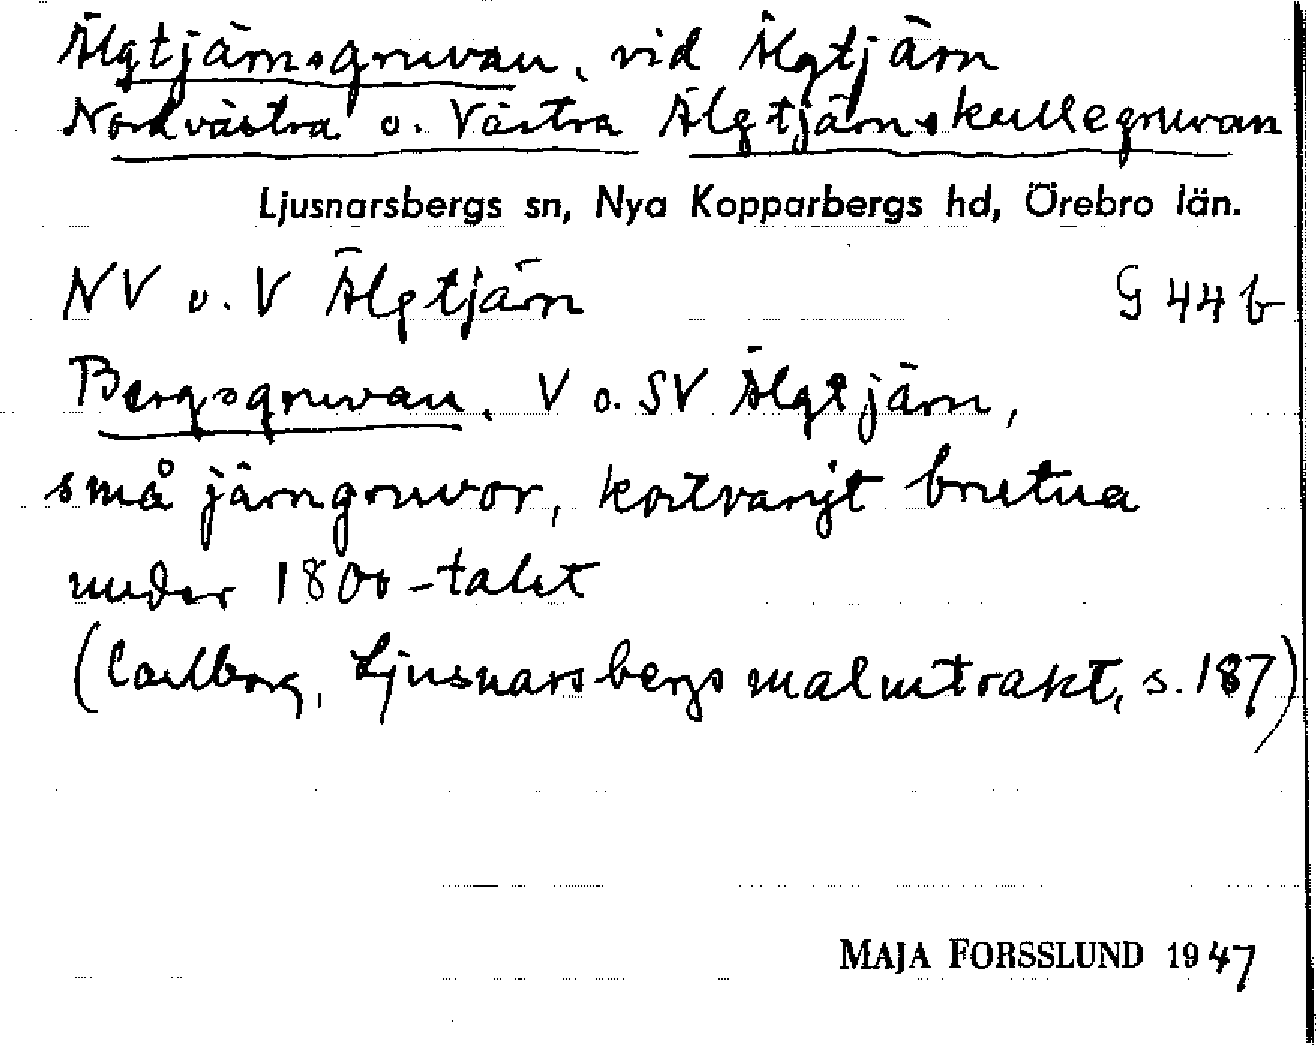 Älgtjärnsgruvan, vid Älgtjärn
Nordvästra o. Västra Älgtjärnskullegruvan
Ljusnarsbergs sn, Nya Kopparbergs hd, Örebro län.
NV o. V Älgtjärn G 44 b
Bergsgruvan, V o. SV Älgtjärn,
små järngruvor, kortvarigt brutna
under 1800-talet
(Carlborg, Ljusnarsbergs malmtrakt, s. 187)
MAJA FORSSLUND 1947